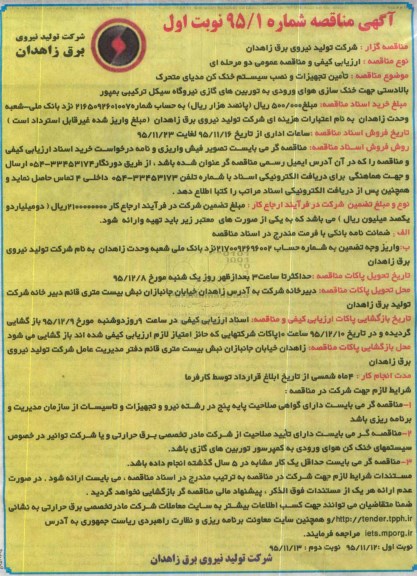 آگهی مناقصه شماره ۹۵/۱ نوبت اول
شرکت تولید نیروی
برق زاهدان
مناقصه گزار : شرکت تولید نیروی برق زاهدان
نوع مناقصه : ارزیابی کیفی و مناقصه عمومی دو مرحله ای
موضوع مناقصه : تأمین تجهیزات و نصب سیستم خنک کن مدیای متحرک
بالادستی جهت خنک سازی هوای ورودی به توربین های گازی نیروگاه سیکل ترکیبی بمپور
مبلغ خرید اسناد مناقصه: مبلغ ۵۰۰/۰۰۰ ریال (پانصد هزار ریال) به حساب شماره ۲۱۶۵۰۹۲۶۰۱۰۰۷ نزد بانک ملی-شعبه
وحدت زاهدان به نام اعتبارات هزینه ای شرکت تولید نیروی برق زاهدان (مبلغ واریز شده غیرقابل استرداد است )
تاریخ فروش اسناد مناقصه: ساعات اداری از تاریخ ۹۵/۱۱/۱۶ لغایت ۹۵/۱۱/۲۳
روش فروش اسناد مناقصه: مناقصه گر می بایست تصویر فیش واریزی و نامه درخواست خرید اسناد ارزیابی کیفی
و مناقصه را که در آن آدرس ایمیل رسمی مناقصه گر عنوان شده باشد ، از طریق دورنگار ۳۳۴۵۳۱۷۴-۰۵۴ ارسال
و جهت هماهنگی برای دریافت الکترونیکی اسناد با شماره تلفن ۳۳۴۵۳۱۷۳-۰۵۴ داخلی ۴ تماس حاصل نماید و
همچنین پس از دریافت الکترونیکی اسناد مراتب را کتبا اطلاع دهد .
نوع و مبلغ تضمین شرکت در فرآیند ارجاع کار : مبلغ تضمین شرکت در فرآیند ارجاع کار ۲۱۰۰۰۰۰۰۰۰ ریال ( دومیلیاردو
یکصد میلیون ریال ) می باشد که به یکی از صورت های معتبر زیر باید تهیه وارائه شود.
الف : ضمانت نامه بانکی با فرمت مندرج در اسناد مناقصه
ب: واریز وجه تضمین به شماره حساب ۲۱۷۰۰۹۲۶۹۶۰۰۲ نزد بانک ملی شعبه وحدت زاهدان به نام شرکت تولید نیروی
برق زاهدان
تاریخ تحویل پاکات مناقصه: حداکثرتا ساعت ۳ بعدازظهر روز یک شنبه مورخ ۹۵/۱۲/۸
محل تحویل پاکات مناقصه: دبیرخانه شرکت به آدرس زاهدان خیابان جانبازان نبش بیست متری قائم دبیر خانه شرکت
تولید نیروی برق زاهدان
تاریخ بازگشایی پاکات ارزیابی کیفی و مناقصه: اسناد ارزیابی کیفی در ساعت ۹ روزدوشنبه مورخ ۹۵/۱۲/۹ باز گشایی
گردیده و در تاریخ ۹۵/۱۲/۱۰ ساعت ۱۰ پاکات شرکتهایی که حائز امتیاز لازم ارزیابی کیفی شده اند باز گشایی می شود
محل بازگشایی پاکات مناقصه: زاهدان خیابان جانبازان نبش بیست متری قائم دفتر مدیریت عامل شرکت تولید نیروی
برق زاهدان
مدت انجام کار : ۴ ماه شمسی از تاریخ ابلاغ قرارداد توسط کارفرما
شرایط لازم جهت شرکت در مناقصه :
۱-مناقصه گر می بایست دارای گواهی صلاحیت پایه پنج در رشته نیرو و تجهیزات و تاسیسات از سازمان مدیریت و
برنامه ریزی باشد
۲-مناقصه گر می بایست دارای تأیید صلاحیت از شرکت مادر تخصصی برق حرارتی و یا شرکت توانیر در خصوص
سیستمهای خنک کن هوای ورودی به کمپرسور توربین های گازی باشد.
۳-مناقصه گر می بایست حداقل یک کار مشابه در ۵ سال گذشته انجام داده باشد.
مستندات شرایط لازم جهت شرکت در مناقصه به ترتیب مندرج در اسناد مناقصه ، می بایست ارائه شود . در صورت
عدم ارائه هر یک از مستندات فوق الذکر ، پیشنهاد مالی مناقصه گر بازگشایی نخواهد گردید .
ضمنا متقاضیان می توانند جهت کسب اطلاعات بیشتر به سایت معاملات شرکت مادرتخصصی برق حرارتی به نشانی
http://tender.tpph.ir/ و همچنین سایت معاونت برنامه ریزی و نظارت راهبردی ریاست جمهوری به آدرس
iets.mporg.ir مراجعه فرمایند.
نوبت اول :۹۵/۱۱/۱۲ نوبت دوم : ۹۵/۱۱/۱۳
شرکت تولید نیروی برق زاهدان